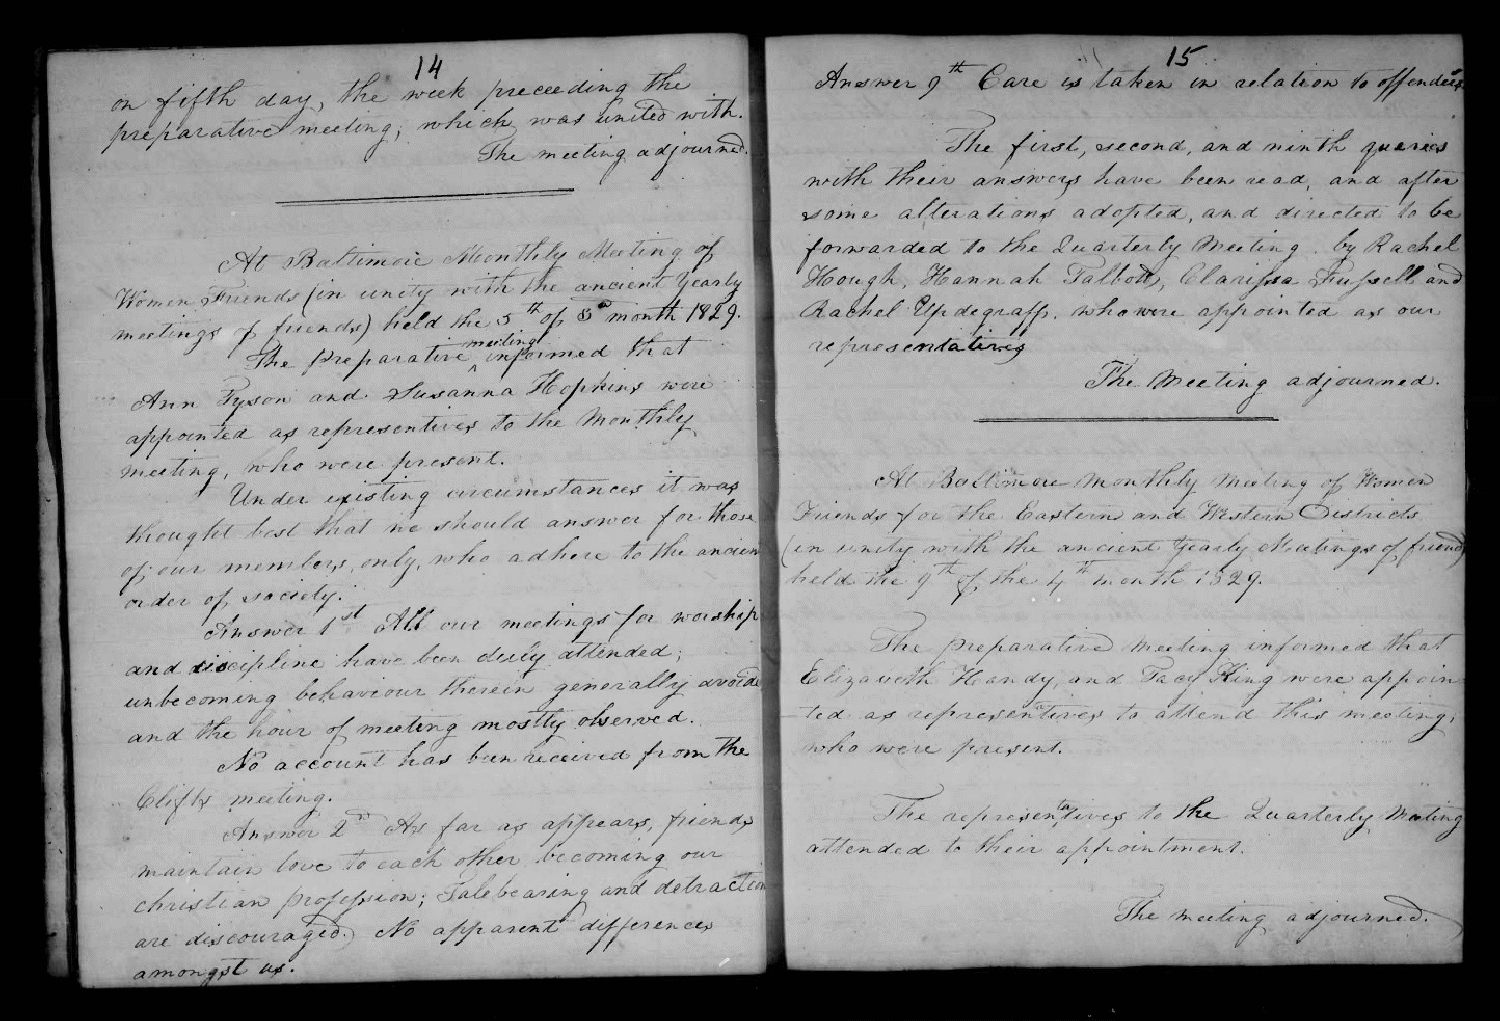 14
on fifth day, the week preceeding the
preparative meeting; which was united with.
The meeting adjourned.
At Baltimore Monthly Meeting of
Women Friends (in unity with the ancient Yearly
meetings of friends) held the 5th of 3d month 1829.
The preparative meeting informed that
Ann Tyson and Susanna Hopkins were
appointed as representives to the Monthly
meeting, who were present.
Under existing circumstances it was
thought best that we should answer for those
of, our members, only, who adhere to the ancien
order of society.
Answer 1st All our meetings for worship
and discipline have been duly attended;
unbecoming behaviour therein generally avoide
and the hour of meeting mostly observed.
No account has been received from the
Clifts meeting.
Answer 2nd As far as appears, friends
maintain love to each other becoming our
christian profession; Talebearing and detraction
are discouraged. No apparent differences
amongst us.
15
Answer 9th Care is taken in relation to offenders
The first, second, and ninth queries
with their answers have been read, and after
some alterations adopted, and directed to be
forwarded to the Quarterly Meeting by Rachel
Hough, Hannah Talbott, Clarissa Fussell and
Rachel Updegraff. who were appointed as our
representatives
The Meeting adjourned.
At Baltimore Monthly Meeting of Women
Friends for the Eastern and Western Districts
(in unity with the ancient Yearly Meetings of friends)
held the 9th of the 4th month 1829.
The preparative Meeting informed that
Elizabeth Handy, and Tacy King were appoin-
ted as representatives to attend this meeting;
who were present.
The representatives to the Quarterly Meeting
attended to their appointment.
The meeting adjourned.